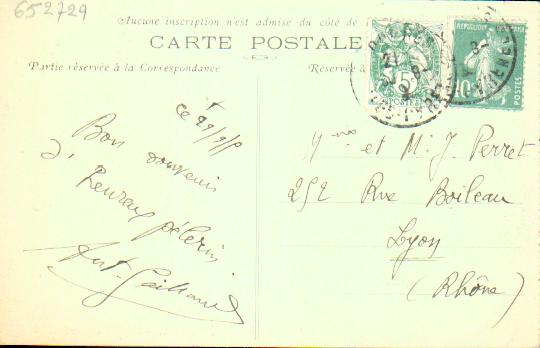 652729
Aucune inscription n'est admise du côté de
CARTE POSTALE
Partie réservée à la Correspondance
Réservée à
POSTES
10c
POSTES
Bon souvenir
d'heureux pèlerin
Ant. Gaillard
et M. J. Perret
252 Rue Boileau
Lyon
(Rhône)